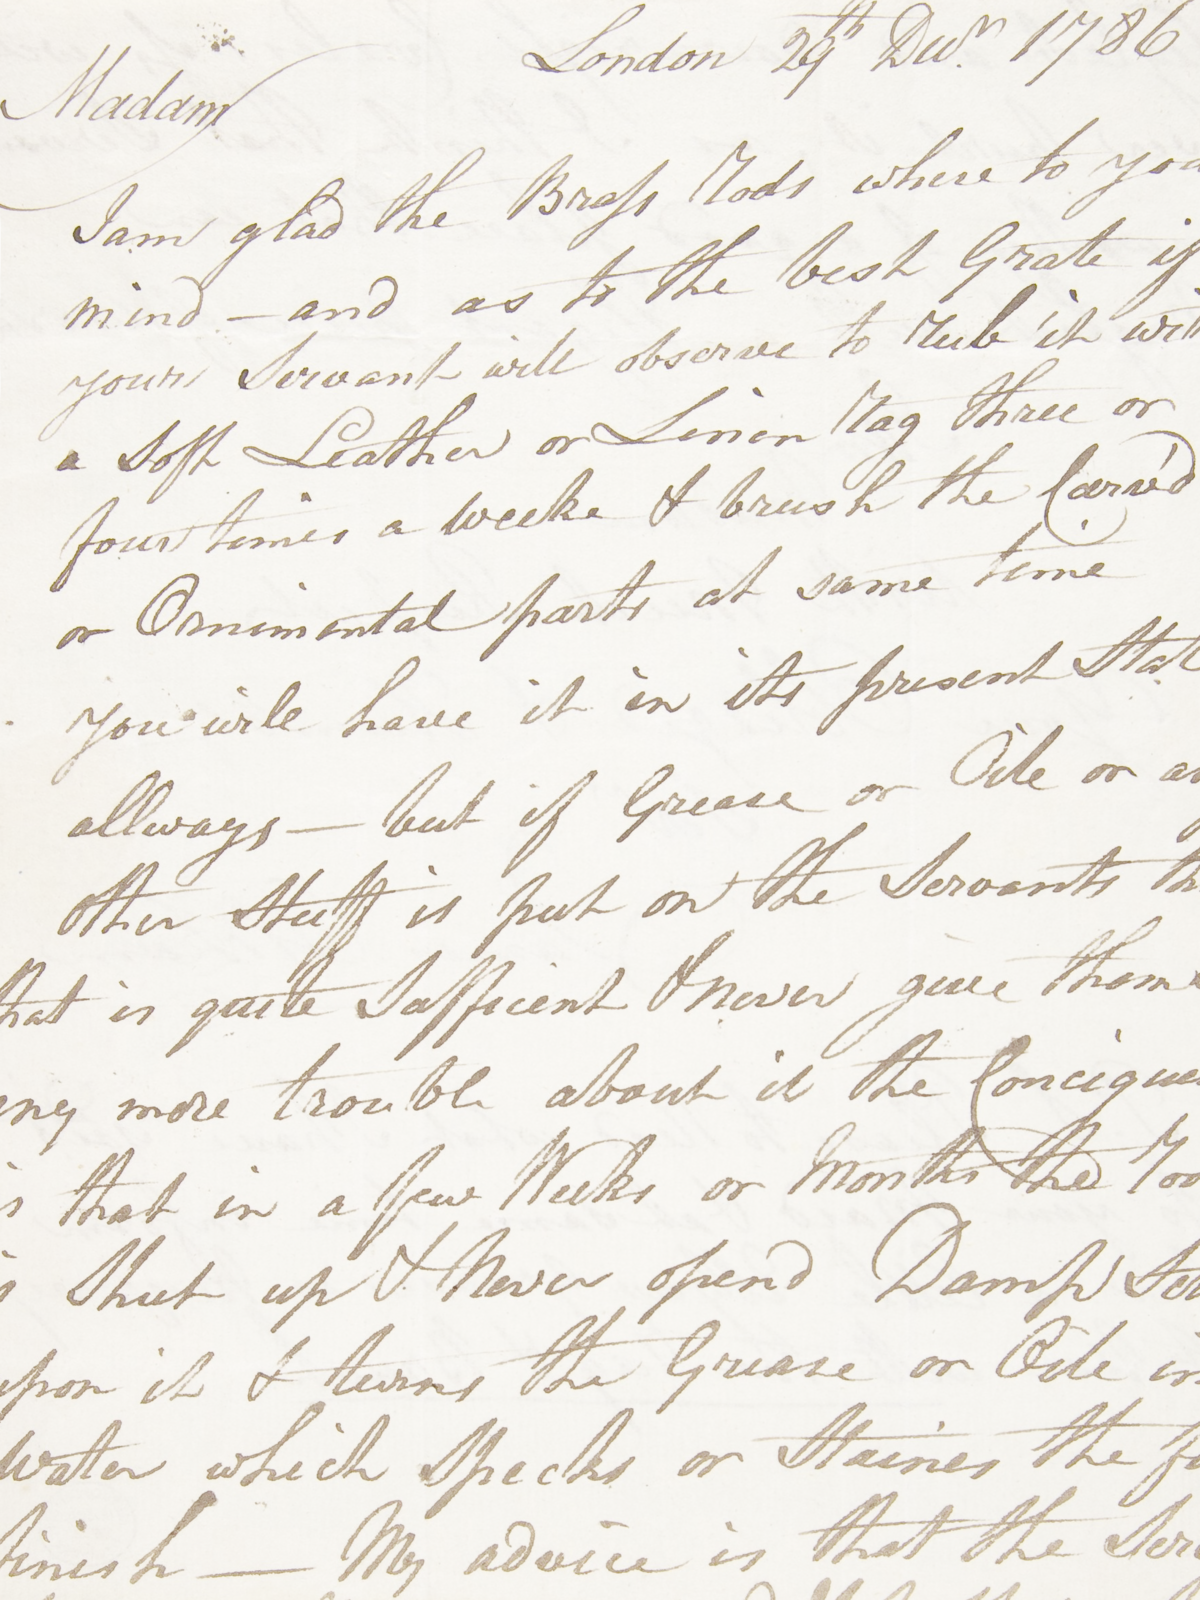 London 29th Decr. 1786
Madam
I am glad the Brass Rods where to you
mind — and as to the best Grate if
your Servant will observe to rub it wit
a soft Leather or Linin Rag three or
four times a weeke & brush the Carv'd
or Ornimental parts at same time
you will have it in its present Stat
allways — but if Grease or Oile or a
other Stuff is put on the Servants th
that is quite Sufficent & never give them
any more trouble about it the Concique
is that in a few Weeks or Months the Roo
is Shut up & Never opend Damp Se
upon it & turns the Grease or Oile in
water which Specks or Staines the f
finish — My advice is that the Ser